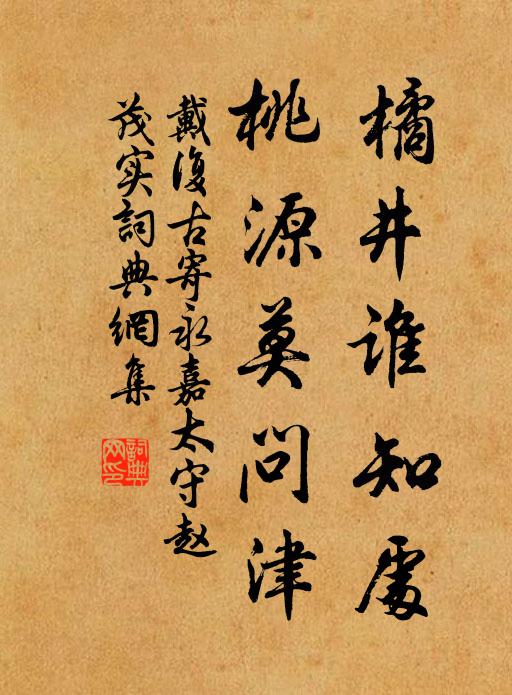 橘井誰知處
桃源莫問津
戴復古寄永嘉太守赵
茂实詞典網集
詞典网印